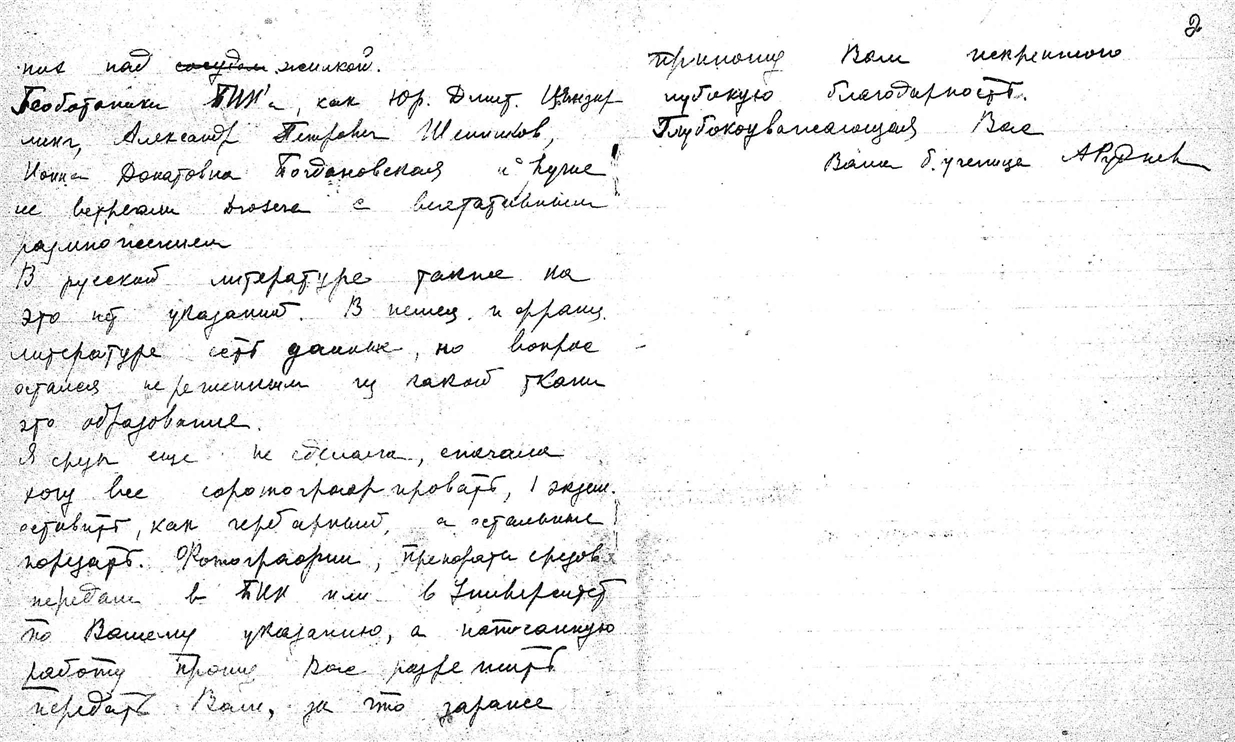 над сосудом жилкой.
Геоботаники БИН'а, как Юр. Дмит. Цинзер
линг, Александр Петрович Шенников,
Иоина Донатовна Богдановская и другие
не встречали Drosera с вегетативным
размножением
В русской литературе также на
это нет указаний. В немец. и франц.
литературе есть данные, но вопрос
остался нерешенным из какой ткани
это образование.
Я срезы еще не сделала, сначала
хочу все сфотографировать, 1 экзем.
оставить, как гербарный, а остальные
порезать. Фотографии, препараты срезов
передам в БИН или в Университет
по Вашему указанию, а написанную
работу прошу Вас разрешить
передать Вам, за что заранее
2
приношу Вам искреннюю
глубокую благодарность.
Глубокоуважающая Вас
Ваша б. ученица